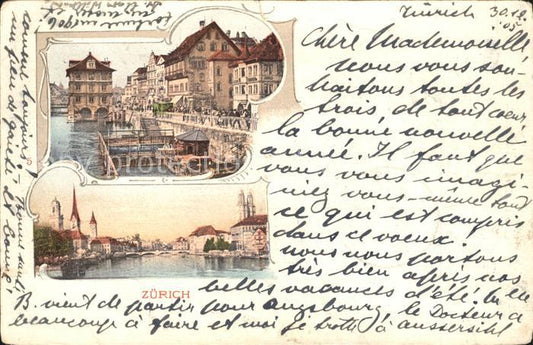 Zürich 30.12.05.
Chère Mademoiselle,
nous vous sou-
haitons toutes les
trois, de tout coeur
la bonne nouvelle
année. Il faut que
vous vous imagi-
niez vous-même tout
ce qui est compris
dans ce voeux.
nous nous portons
très bien après nos
belles vacances d'été.
B. vient de partir pour Augsbourg, le Docteur a
beaucoup à faire et moi je trotte à Aussersihl
comment toujours!
un peu de
1906
ZÜRICH